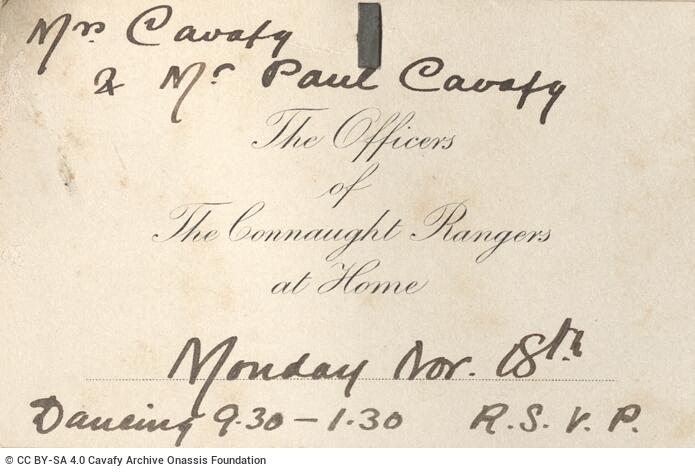 Mrs Cavafy
& Mr Paul Cavafy
The Officers
of
The Connaught Rangers
at Home
Monday Nov. 18th
Dancing 9.30 – 1.30 R.S.V.P.
© CC BY-SA 4.0 Cavafy Archive Onassis Foundation